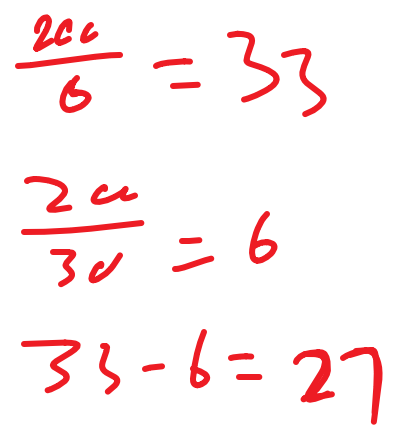 200/6 = 33
200/30 = 6
33 - 6 = 27